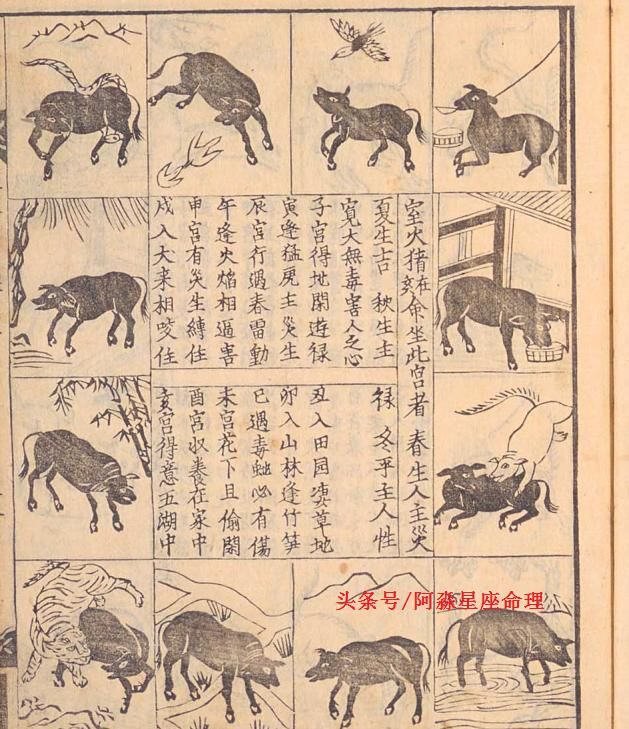 室火猪在亥命坐此宫者 春生人主災
夏生吉 秋生主禄 冬平主人性
寬大無毒害人之心
子宫得地閑遊禄
丑入田园凄草地
寅逢猛虎主災生
卯入山林逢竹笋
辰宫行遇春雷動
巳遇毒蛇心有傷
午逢火焰相逼害
未宫花下且偷閑
申宫有災生縛住
酉宫收養在家中
戌入大来相咬住
亥宫得意五湖中
头条号/阿淼星座命理